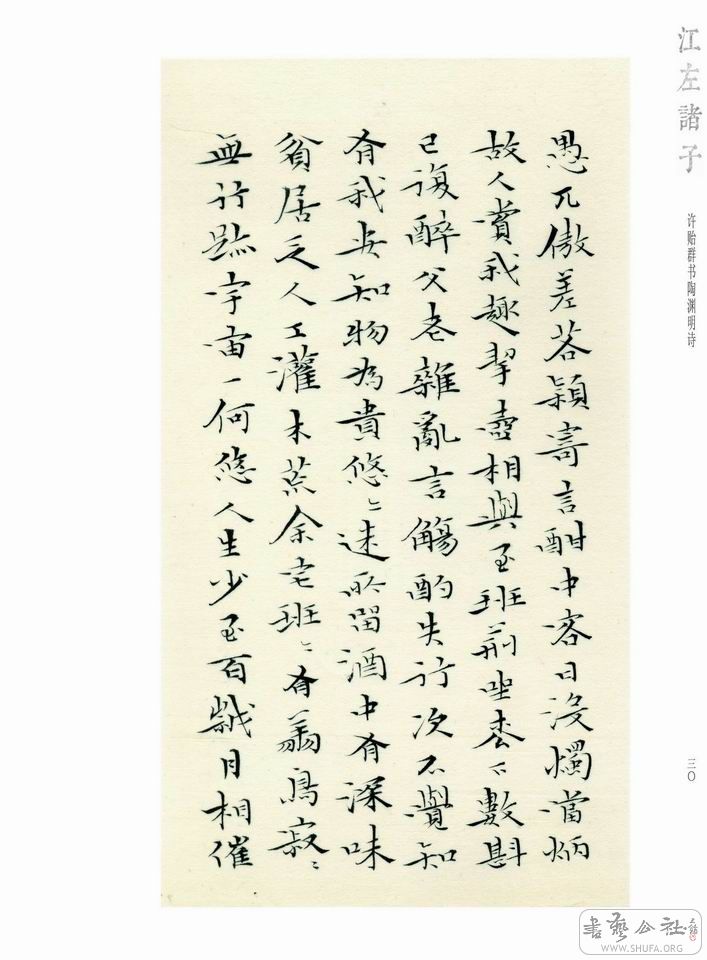 江左諸子
许贻群书陶渊明诗
三〇
愚兀傲差若穎寄言酣中客日没燭當炳
故人賞我趣挈壺相與至班荊坐松下數斟
已復醉父老雜亂言觴酌失行次不覺知
有我安知物為貴悠〻迷所留酒中有深味
貧居乏人工灌木荒余宅班〻有翔鳥寂〻
無行跡宇宙一何悠人生少至百歲月相催
書藝公社
WWW.SHUFA.ORG